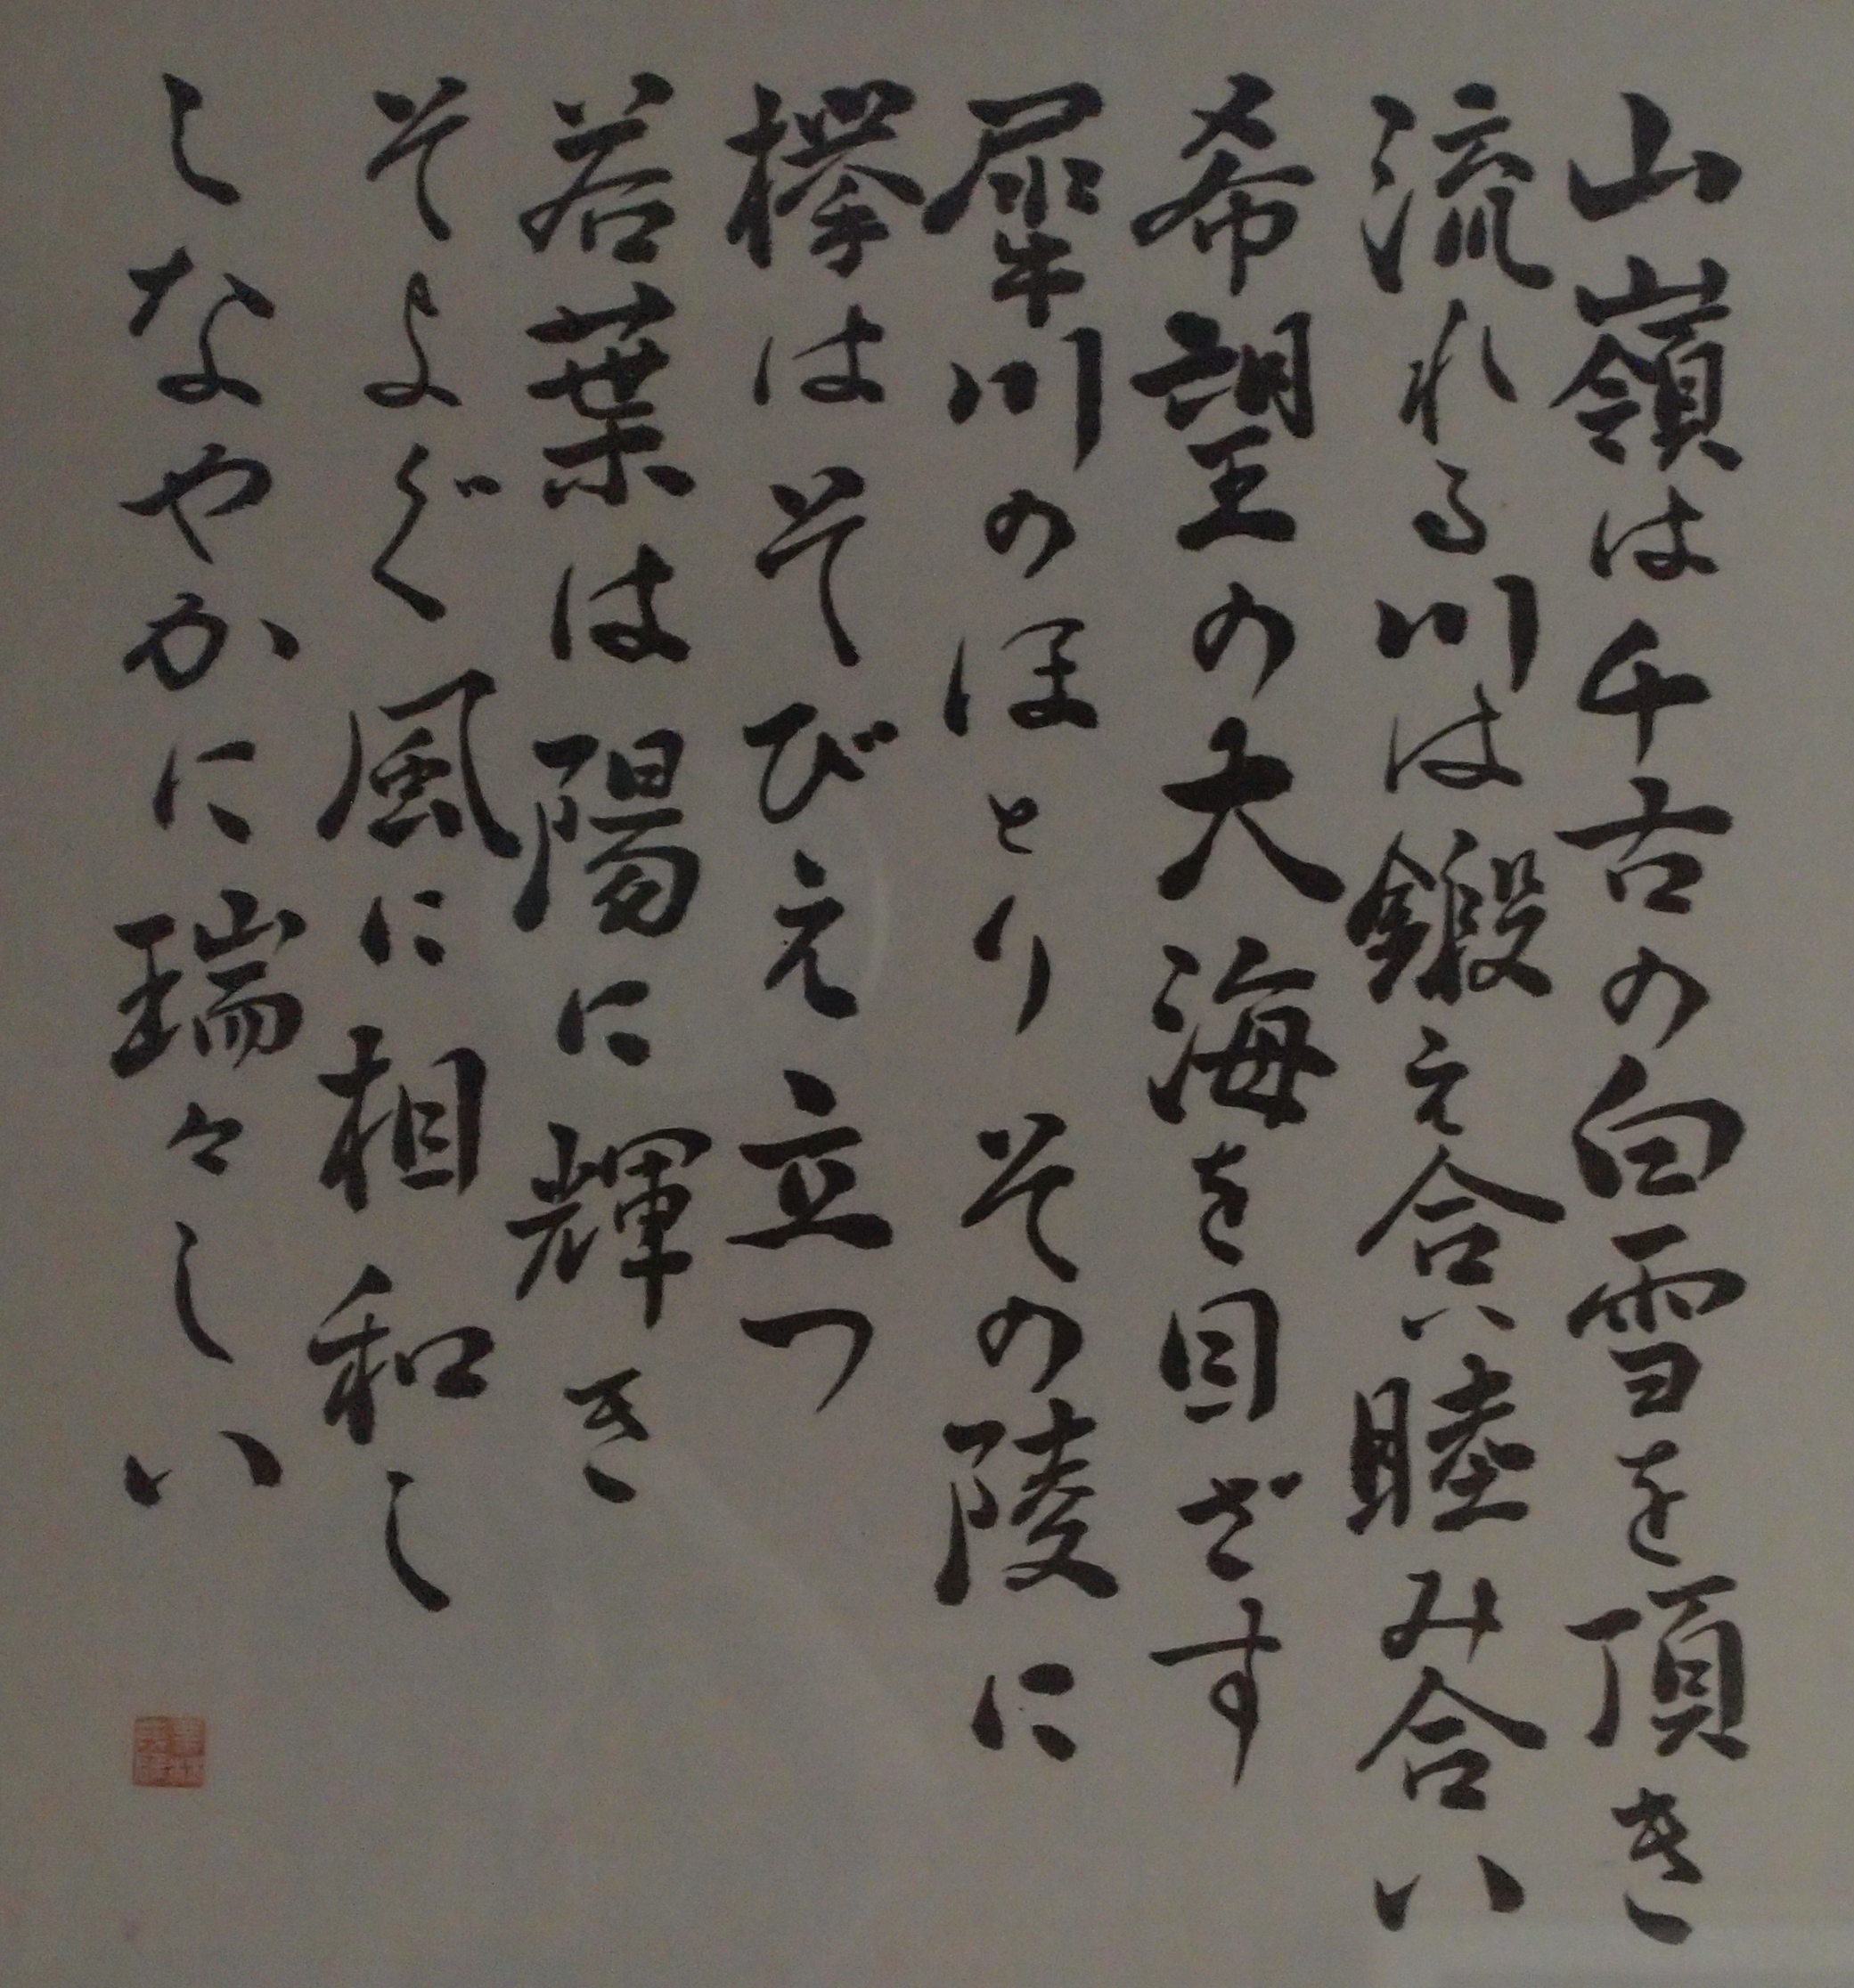 山嶺は千古の白雪を頂き
流れる川は鍛え合い睦み合い
希望の大海を目ざす
犀川のほとり その陵に
欅はそびえ立つ
若葉は陽に輝き
そよぐ風に相和し
しなやかに瑞々しい